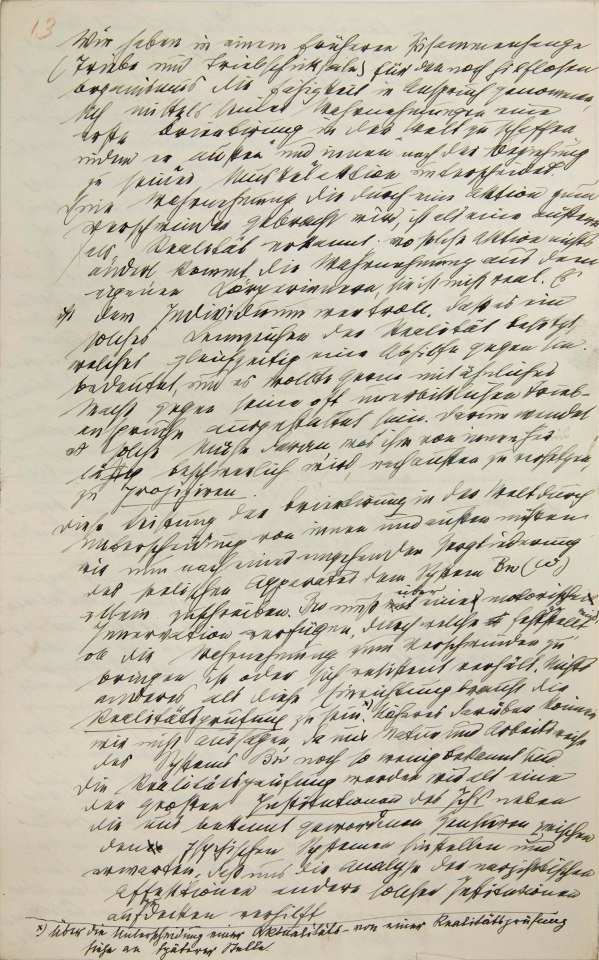 13
Wir haben in einem früheren Zusammenhange
(Triebe und Triebschicksale) für den noch hilflosen
Organismus die Fähigkeit in Anspruch genommen,
sich mittels seiner Wahrnehmungen eine
erste Orientirung in der Welt zu schaffen,
indem er „außen" und innen nach der Beziehung
zu seiner Muskelaktion unterscheidet.
Eine Wahrnehmung die durch eine Aktion zum
verschwinden gebracht wird ist als eine äußere
als Realität erkannt; wo solche Aktion nichts
ändert kommt die Wahrnehmung aus dem
eigenen Körperinnern, sie ist nicht real. Es
ist dem Individuum wertvoll, daß es ein
solches Kennzeichen der Realität besitzt,
welches gleichzeitig eine Abhilfe gegen sie
bedeutet, und es wollte gerne mit ähnlicher
Macht gegen seine oft unerbittlichen Trieb-
ansprüche ausgestattet sein. Darum wendet
es solche Mühe daran, was ihm von innen her
lästig beschwerlich wird, nach außen zu versetzen
zu projiziren.
Diese Leistung der Orientirung in der Welt durch
Unterscheidung von innen und außen müssen
wir nun nach einer eingehenden Zergliederung
des seelischen Apparates dem System Bw (W)
allein zuschreiben. Bw muß über eine motorische
Innervation verfügen, durch welche festgestellt wird,
ob die Wahrnehmung zum Verschwinden zu
bringen ist oder sich resistent verhält. Nichts
anderes als diese Einrichtung braucht die
Realitätsprüfung zu sein. x) Näheres darüber können
wir nicht aussagen, da uns Natur und Arbeitsweise
des Systems Bw noch so wenig bekannt sind.
Die Realitätsprüfung werden wir als eine
der großen Institutionen des Ichs neben
die uns bekannt gewordenen Zensuren zwischen
den psychischen Systemen hinstellen und
erwarten, daß uns die Analyse der narzißtischen
Affektionen andere solcher Institutionen
aufdecken verhilft
x) Über die Unterscheidung einer Aktualitäts- von einer Realitätsprüfung
siehe an späterer Stelle.